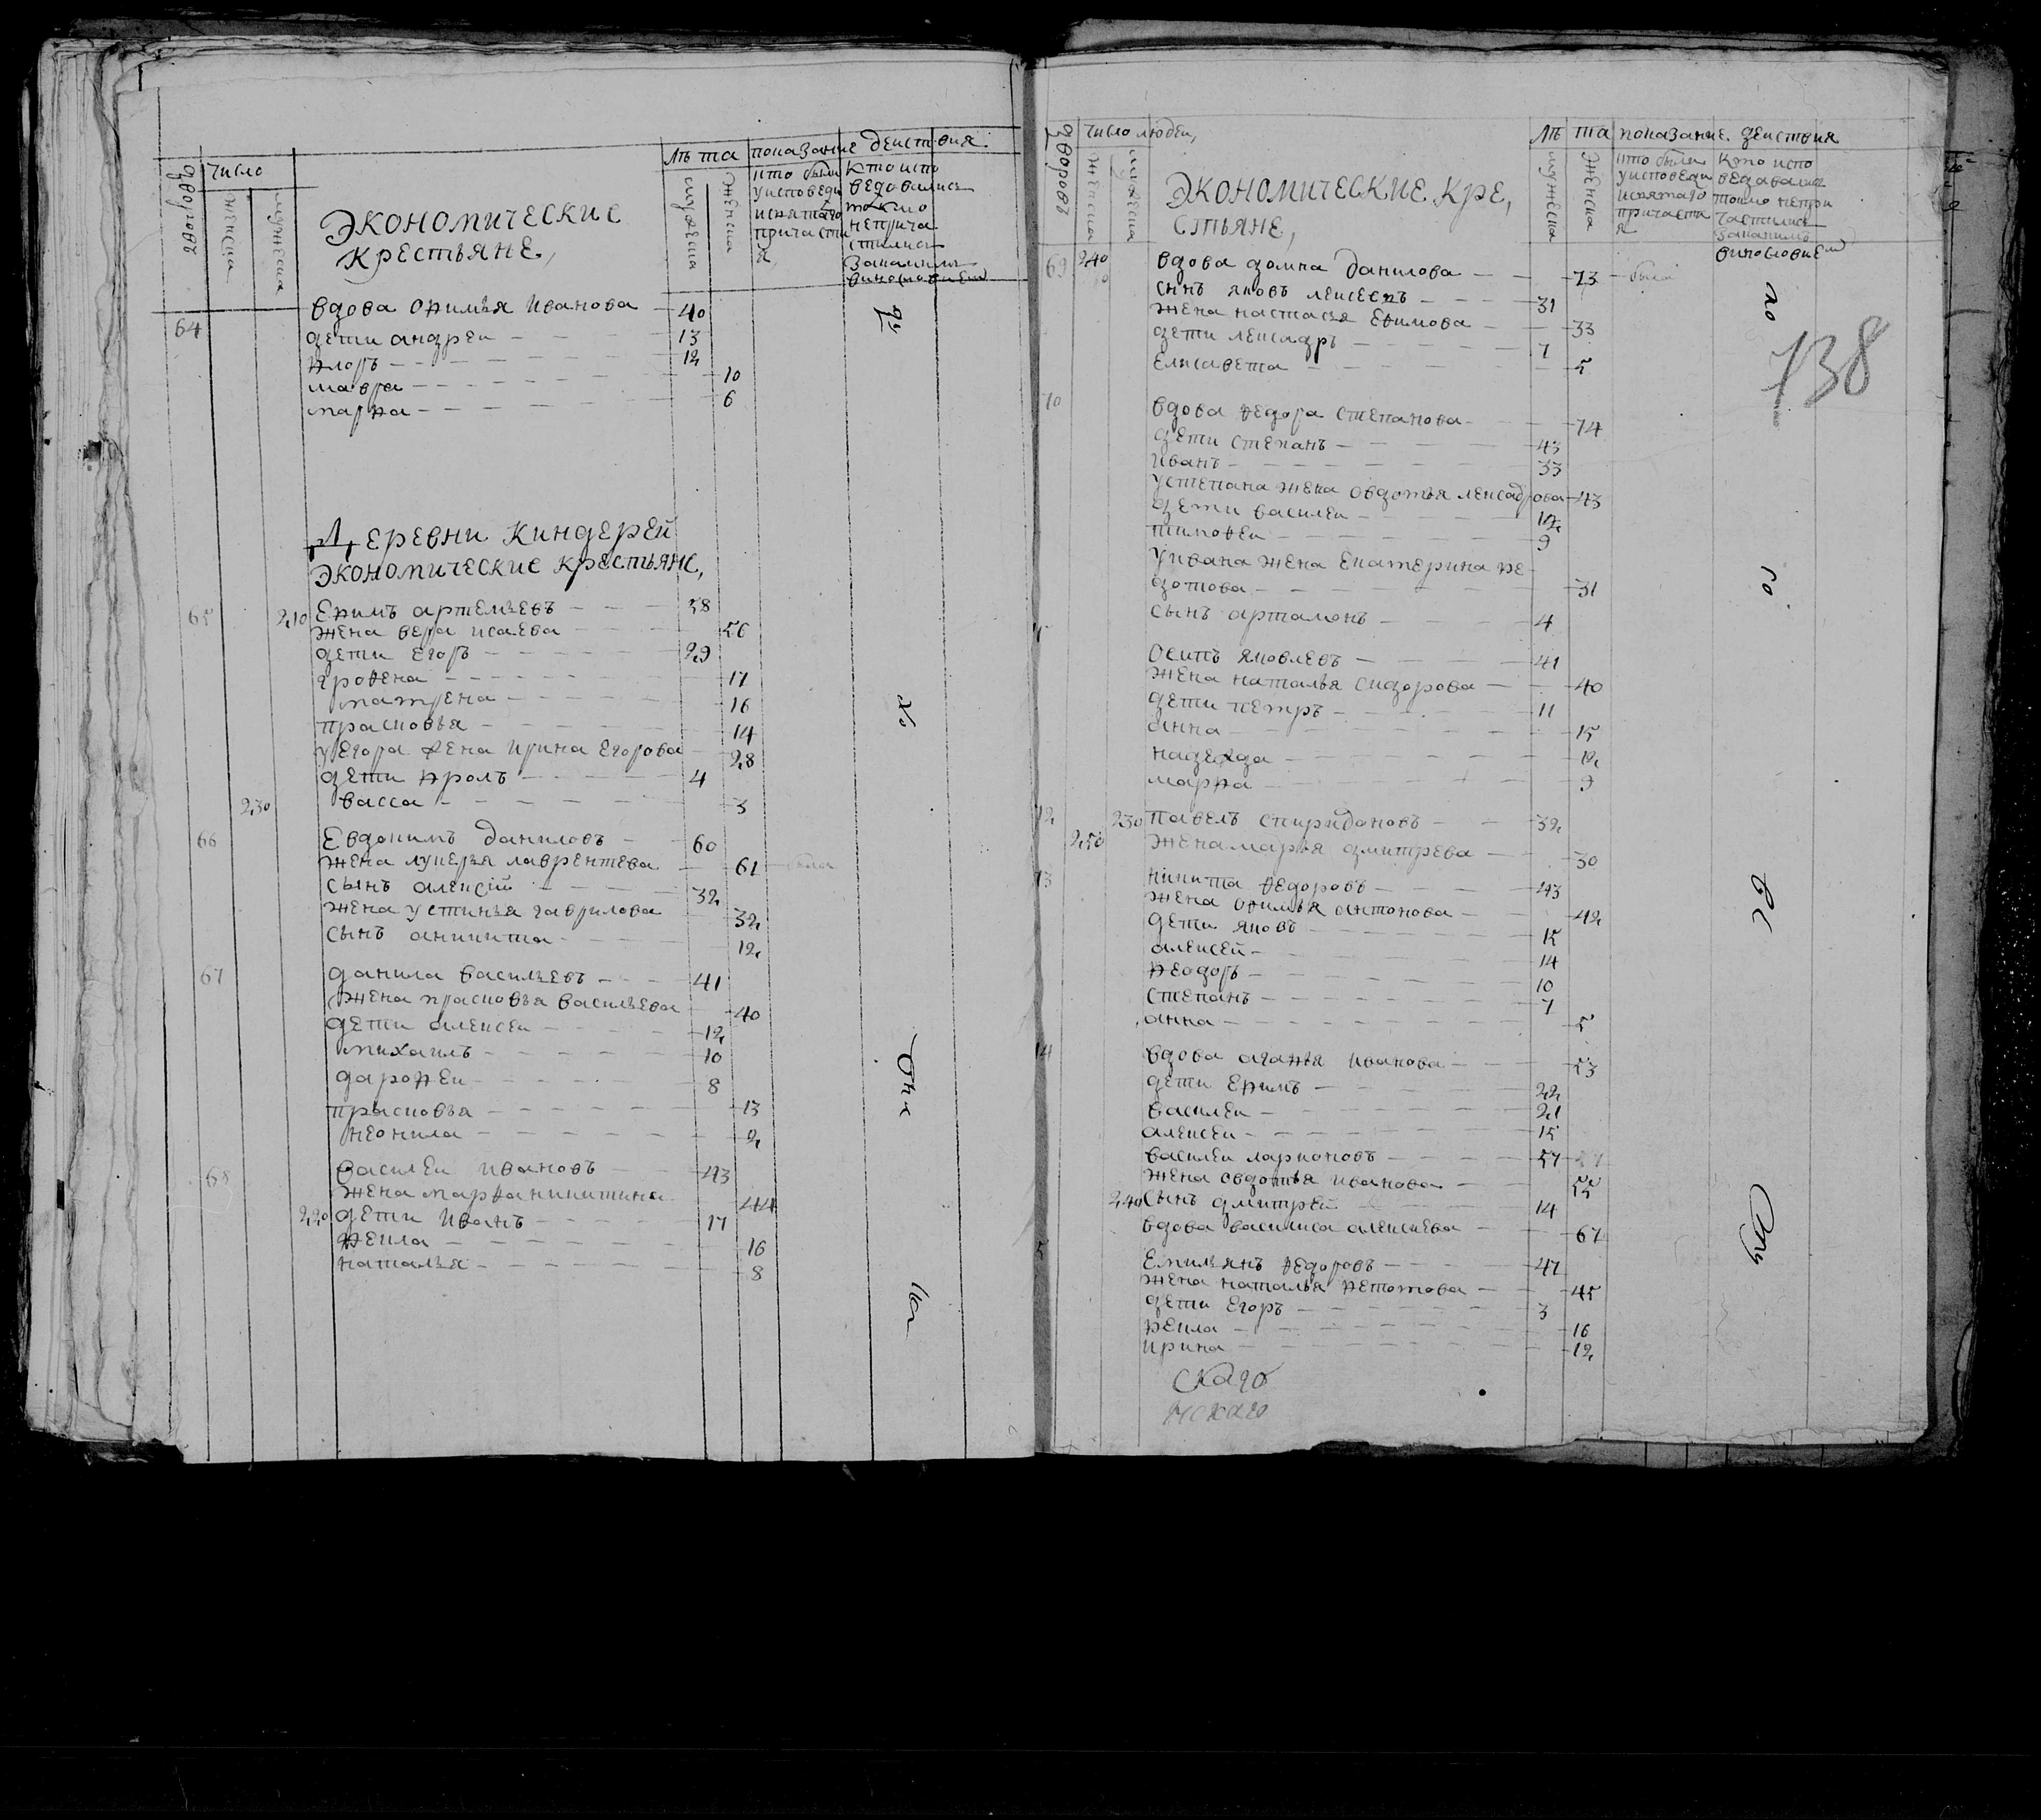 дворовъ
число
женска
мужеска
Экономические
крестьяне,
лѣта показание действия
мужеска
женска
кто были
у исповеди
и святаго
причасти
я,
кто испо
ведовались
токмо
неприча
стились
за каким
винословием
64 вдова офимья иванова 40
дети андреи 13
флоръ 12
мавра 10
марфа 6
Деревни Киндерей
экономические крестьяне,
65 210 Ефимъ артемьевъ 58
жена вера исаева 56
дети егоръ 29
матрена 16
прасковья 14
у егора жена ирина егорова 28
дети фролъ 4
230 васса 3
66 Евдокимъ даниловъ 60
жена лукерья лаврентева 61 была
сынъ алексій 32
жена устинья гаврилова 32
сынъ аникита 12
67 данила васильевъ 41
жена прасковья васильева 40
дети алексеи 12
михаилъ 10
дарофеи 8
прасковья 13
неонила 2
68 василеи ивановъ 43
жена марфа никитина 44
220 дети иванъ 17
фекла 16
наталья 8
дворовъ
число людеи,
женска
мужеска
Экономические кре,
стьяне,
лѣта показание действия
мужеска
женска
кто были
у исповеди
и святаго
причасти
я
кто испо
ведавалис
токмо непри
частились
за каким
винословием
69 240 вдова домна данилова 73 была
сынъ яковъ лексеевъ 31
жена настасья ефимова 33
дети лексадръ 7
елисавета 5
738
70 вдова федора степанова 74
дети степанъ 43
иванъ 33
у степана жена овдотья лексадрова 43
дети василеи 12
тимофеи 9
у ивана жена екатерина фе
дотова 31
сынъ артамонъ 4
осипъ яковлевъ 41
жена наталья сидорова 40
дети петръ 11
анна 15
надежда 12
марфа 9
72 230 павелъ спиридоновъ 32
250 жена марья дмитрева 30
73 никита федоровъ 43
жена офимья антонова 42
дети яковъ 15
алексей 14
феодоръ 10
степанъ 7
анна 5
74 вдова агафья иванова 53
дети ефимъ 22
василеи 21
алексеи 15
василеи ларионовъ 57
жена овдотья иванова 55
240 сынъ дмитрей 14
вдова василиса алексиева 67
5 Емильянъ федоровъ 47
жена наталья фетотова 45
дети егоръ 3
фекла 16
ирина 12
скаго